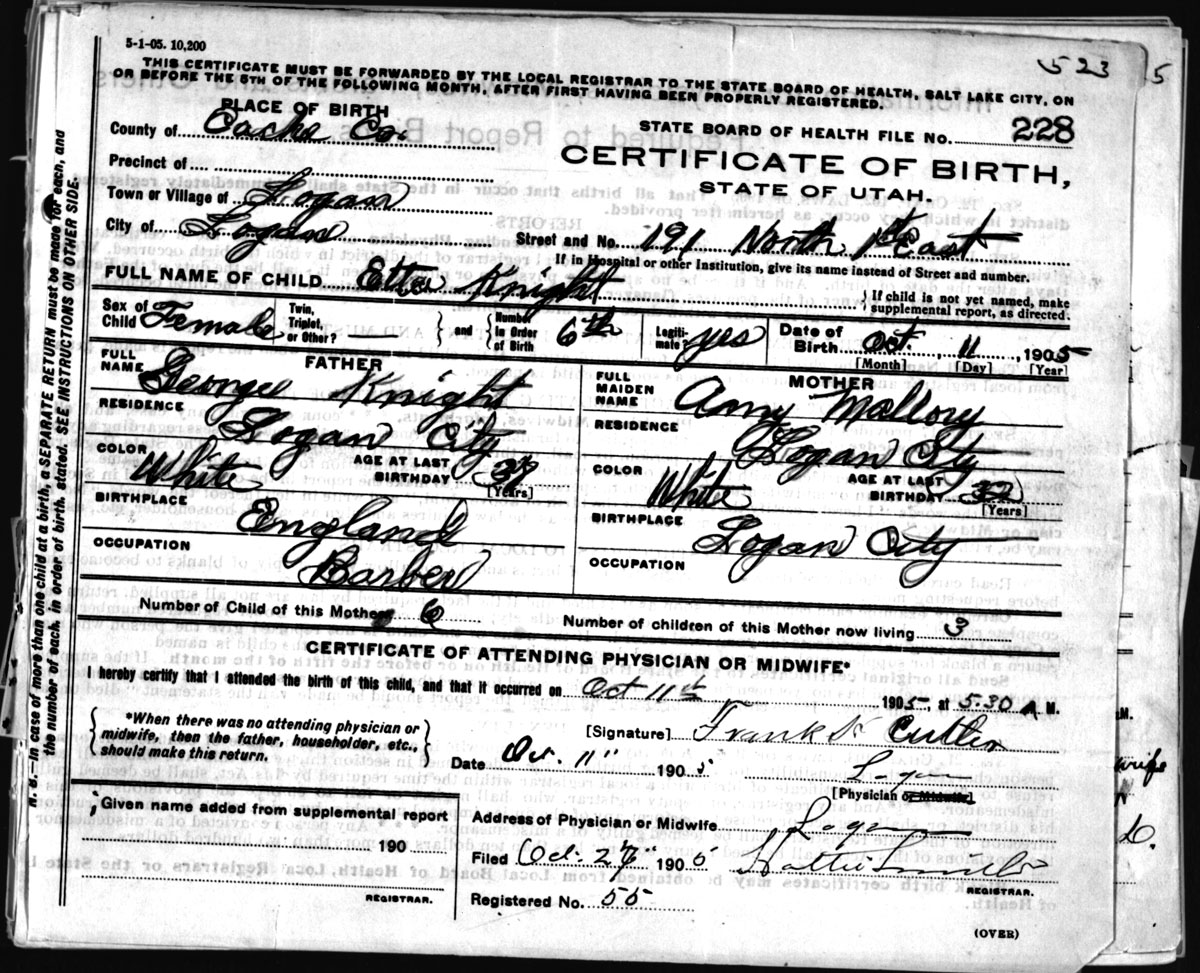 5-1-05. 10,200
523
5
THIS CERTIFICATE MUST BE FORWARDED BY THE LOCAL REGISTRAR TO THE STATE BOARD OF HEALTH, SALT LAKE CITY, ON
OR BEFORE THE 5TH OF THE FOLLOWING MONTH, AFTER FIRST HAVING BEEN PROPERLY REGISTERED.
PLACE OF BIRTH
County of Cache Co.
STATE BOARD OF HEALTH FILE No. 228
CERTIFICATE OF BIRTH,
STATE OF UTAH.
Precinct of
Town or Village of Logan
City of Logan
Street and No. 191 North 1st East
If in Hospital or other Institution, give its name instead of Street and number.
FULL NAME OF CHILD Etta Knight
If child is not yet named, make
supplemental report, as directed.
Sex of Child Female
Twin, Triplet, or Other? —
and
Number in Order of Birth 6th
Legiti-mate? yes
Date of Birth Oct. 11, 1905
[Month] [Day] [Year]
FATHER
FULL NAME George Knight
RESIDENCE Logan City
COLOR White
AGE AT LAST BIRTHDAY
[Years]
BIRTHPLACE England
OCCUPATION Barber
MOTHER
FULL MAIDEN NAME Amy Mallory
RESIDENCE Logan City
COLOR White
AGE AT LAST BIRTHDAY 32
[Years]
BIRTHPLACE Logan City
OCCUPATION
Number of Child of this Mother 6
Number of children of this Mother now living 3
CERTIFICATE OF ATTENDING PHYSICIAN OR MIDWIFE*
I hereby certify that I attended the birth of this child, and that it occurred on Oct 11th 1905, at 5.30 A M.
*When there was no attending physician or
midwife, then the father, householder, etc.,
should make this return.
[Signature] Frank Cutler
Date Oct. 11" 1905
[Physician or Midwife]
Given name added from supplemental report
190
REGISTRAR.
Address of Physician or Midwife Logan
Filed Oct. 1905
REGISTRAR.
Registered No. 55
(OVER)
N. B.—In case of more than one child at a birth, a SEPARATE RETURN must be made for each, and
the number of each, in order of birth, stated. SEE INSTRUCTIONS ON OTHER SIDE.